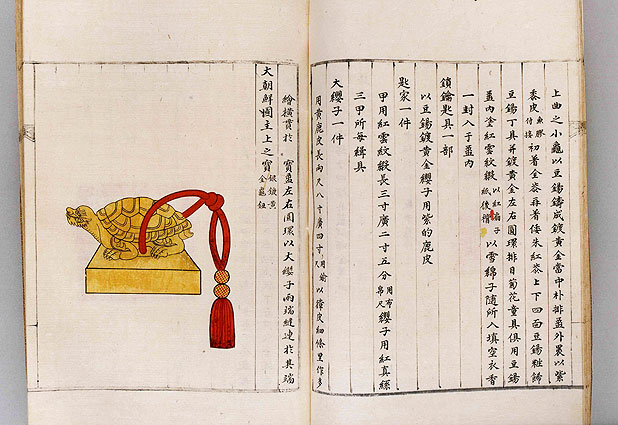 上曲之小龜以豆錫鑄成鍍黃金當中朴排盖外裹以紫
黍皮魚膠付接初着全柒再着倭朱紅柒上下四面豆錫粧餙
豆錫丁具并鍍黃金左右圓環排目菊花童具俱用豆錫
盖內塗紅雲紋緞以紅扇子紙後褙以雪綿子隨所入填空衣香
一封入于盖內
鎖鑰匙具一部
以豆錫鍍黃金纓子用紫的鹿皮
匙家一件
甲用紅雲紋緞長三寸廣二寸五分用布帛尺纓子用紅真絲
三甲所每緝具
大纓子一件
用黃鹿皮長兩尺八寸廣四寸用鍮尺以擣皮細條里作多
繪橫貫於 寶盖左右圓環以大纓子兩端縫連於其端
大朝鮮國主上之寶銀鍍黃金龜鈕